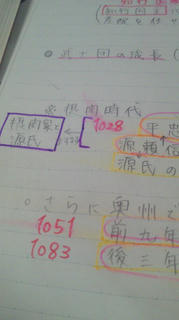 知行国主
武士団の成長(
※摂関時代
摂関家と
源氏
1028
平忠
源頼信
源氏の
○さらに奥州で
1051
前九年
1083
後三年